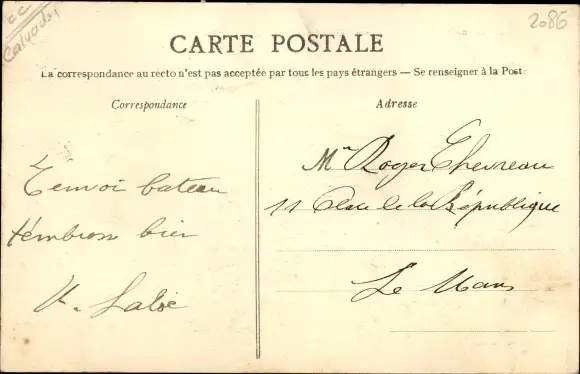 cc
Calvados
2086
CARTE POSTALE
La correspondance au recto n'est pas acceptée par tous les pays étrangers — Se renseigner à la Poste
Correspondance
Adresse
T'envoi bateau
t'embrasse bien
Mr Roger Chevreau
11 Place de la République
Le Mans